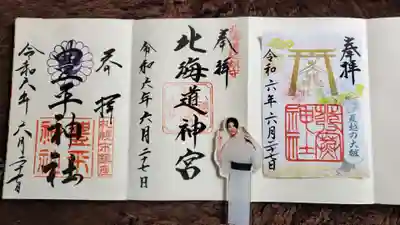 奉拝
令和六年六月二十七日
夏越の大祓
神社
奉拝
北海道神宮
令和六年六月二十七日
奉拝
豊平神社
令和六年六月二十七日